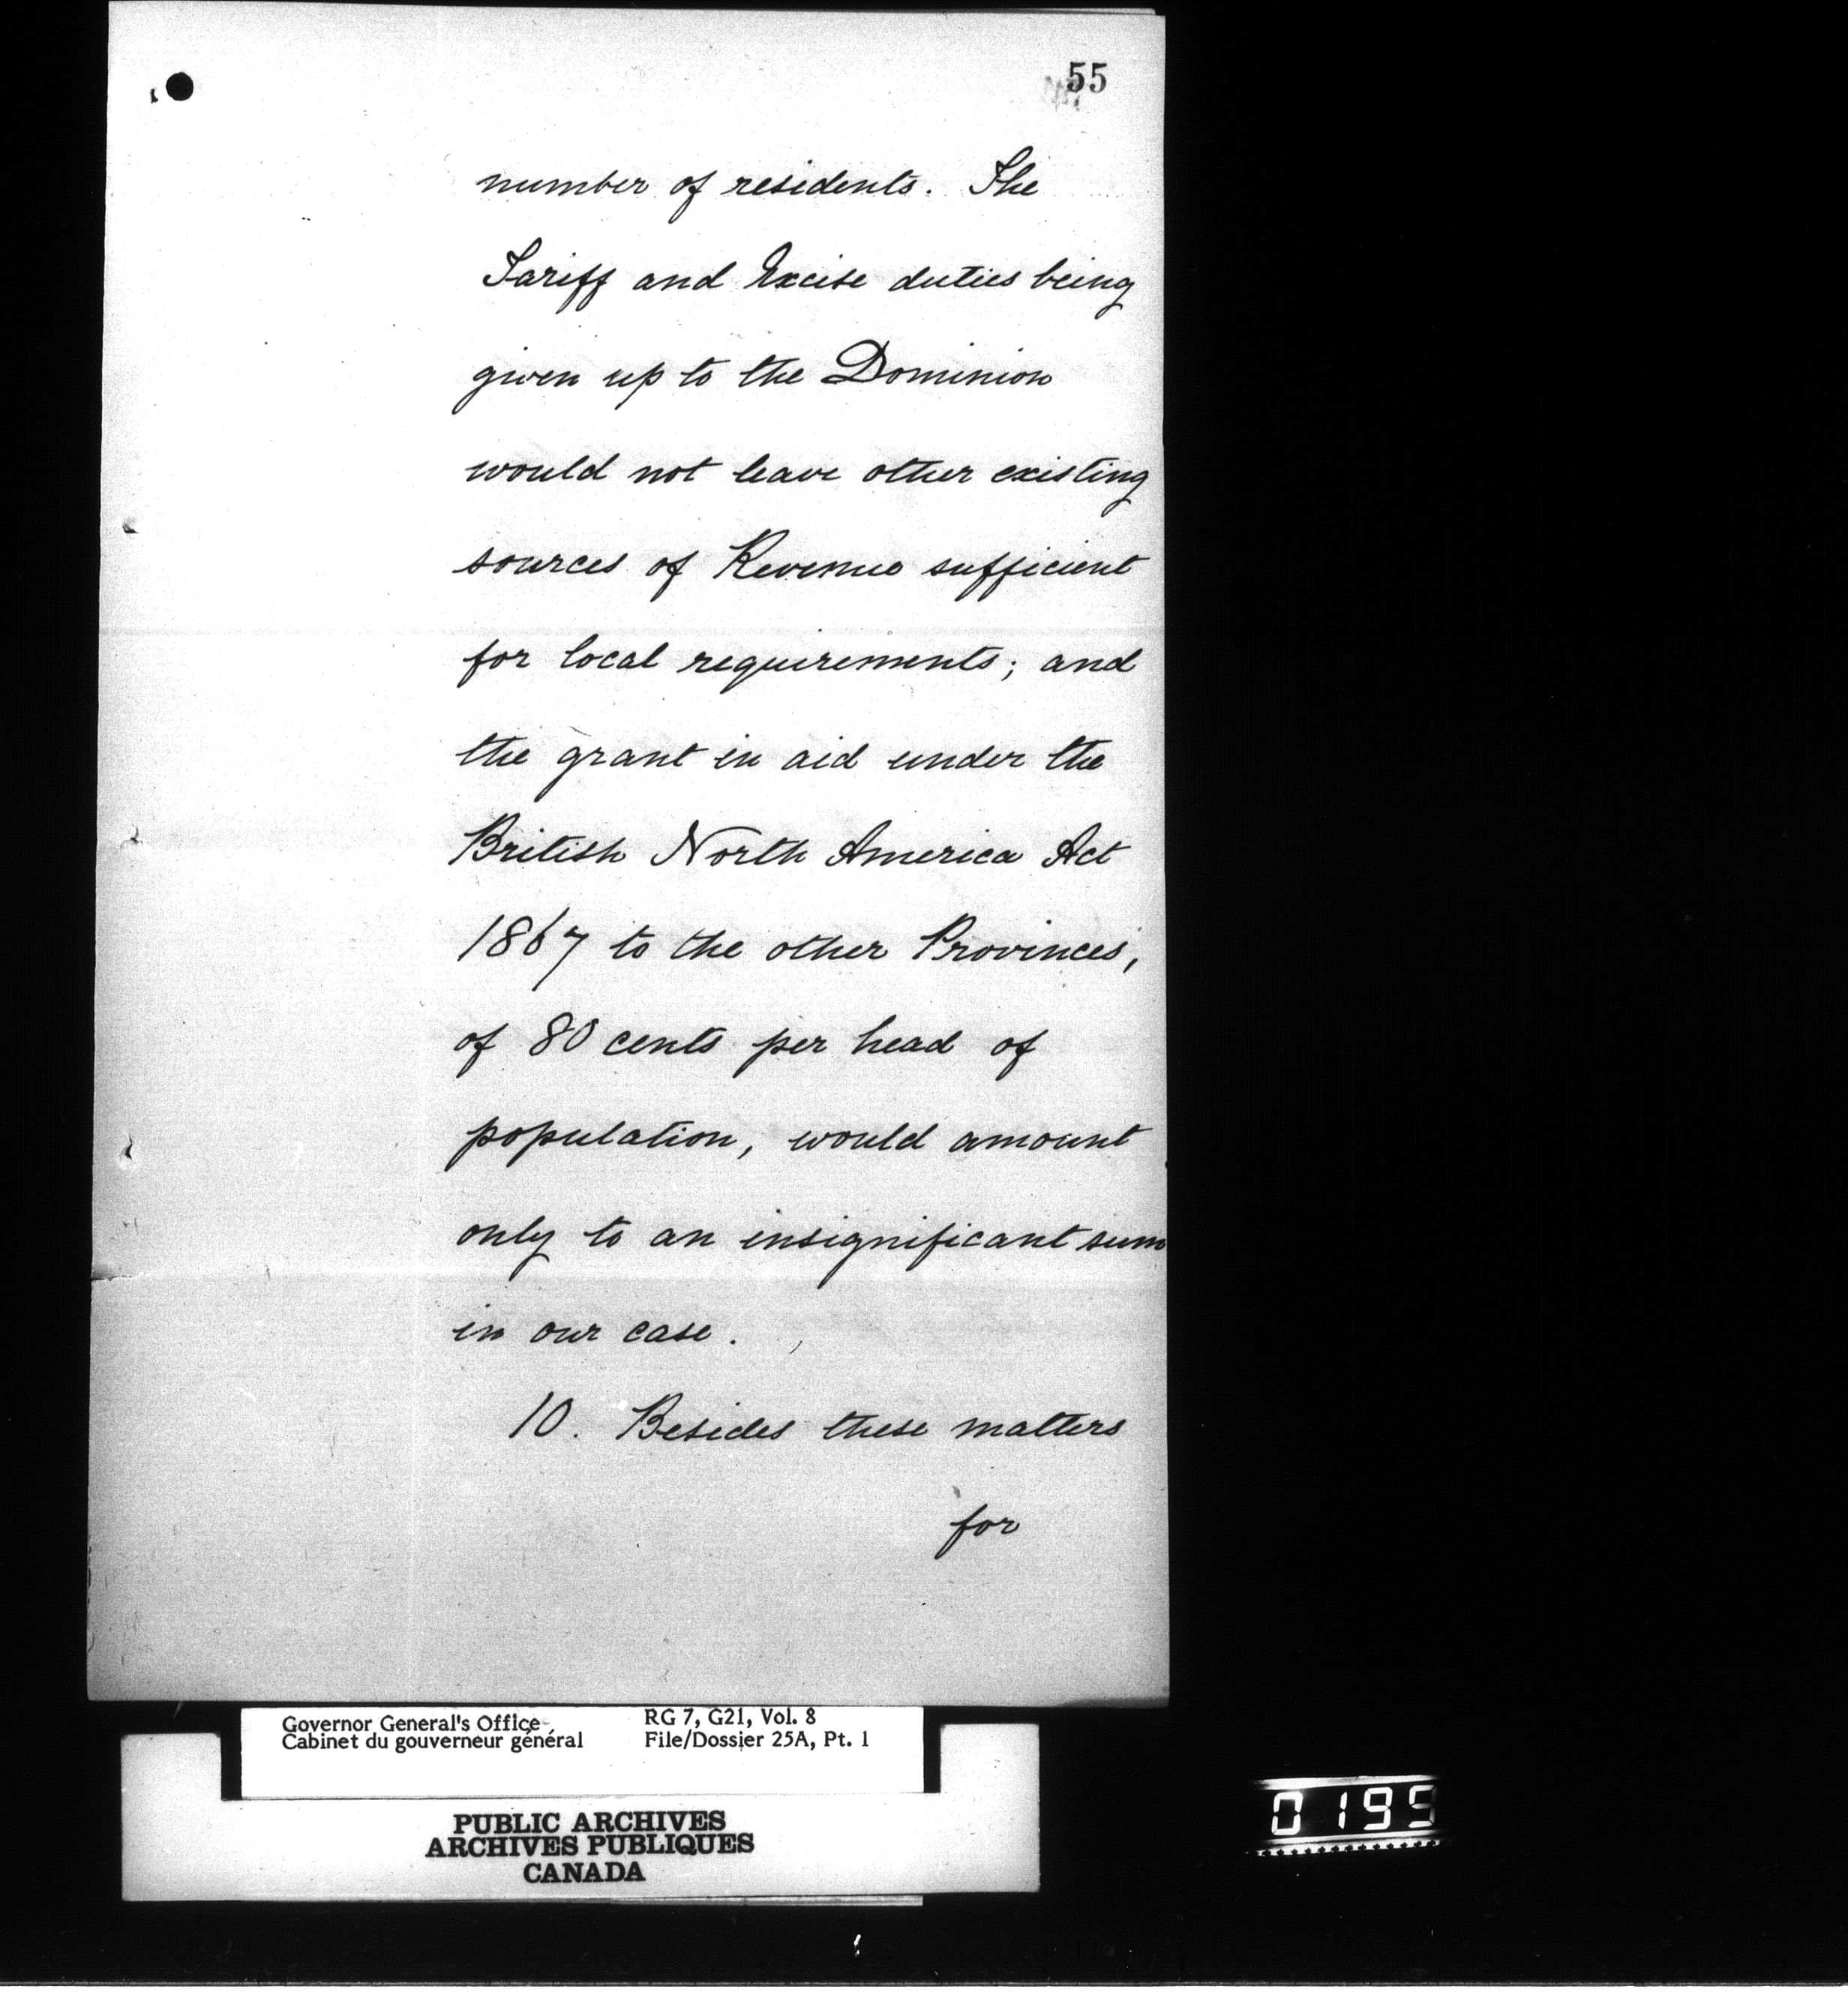 55
number of residents. The
Tariff and Excise duties being
given up to the Dominion
would not leave other existing
sources of Revenue sufficient
for local requirements; and
the grant in aid under the
British North America Act
1867 to the other Provinces,
of 80 cents per head of
population, would amount
only to an insignificant sum
in our case.
10. Besides these matters
for
Governor General's Office
Cabinet du gouverneur général
RG 7, G21, Vol. 8
File/Dossier 25A, Pt. 1
PUBLIC ARCHIVES
ARCHIVES PUBLIQUES
CANADA
0199